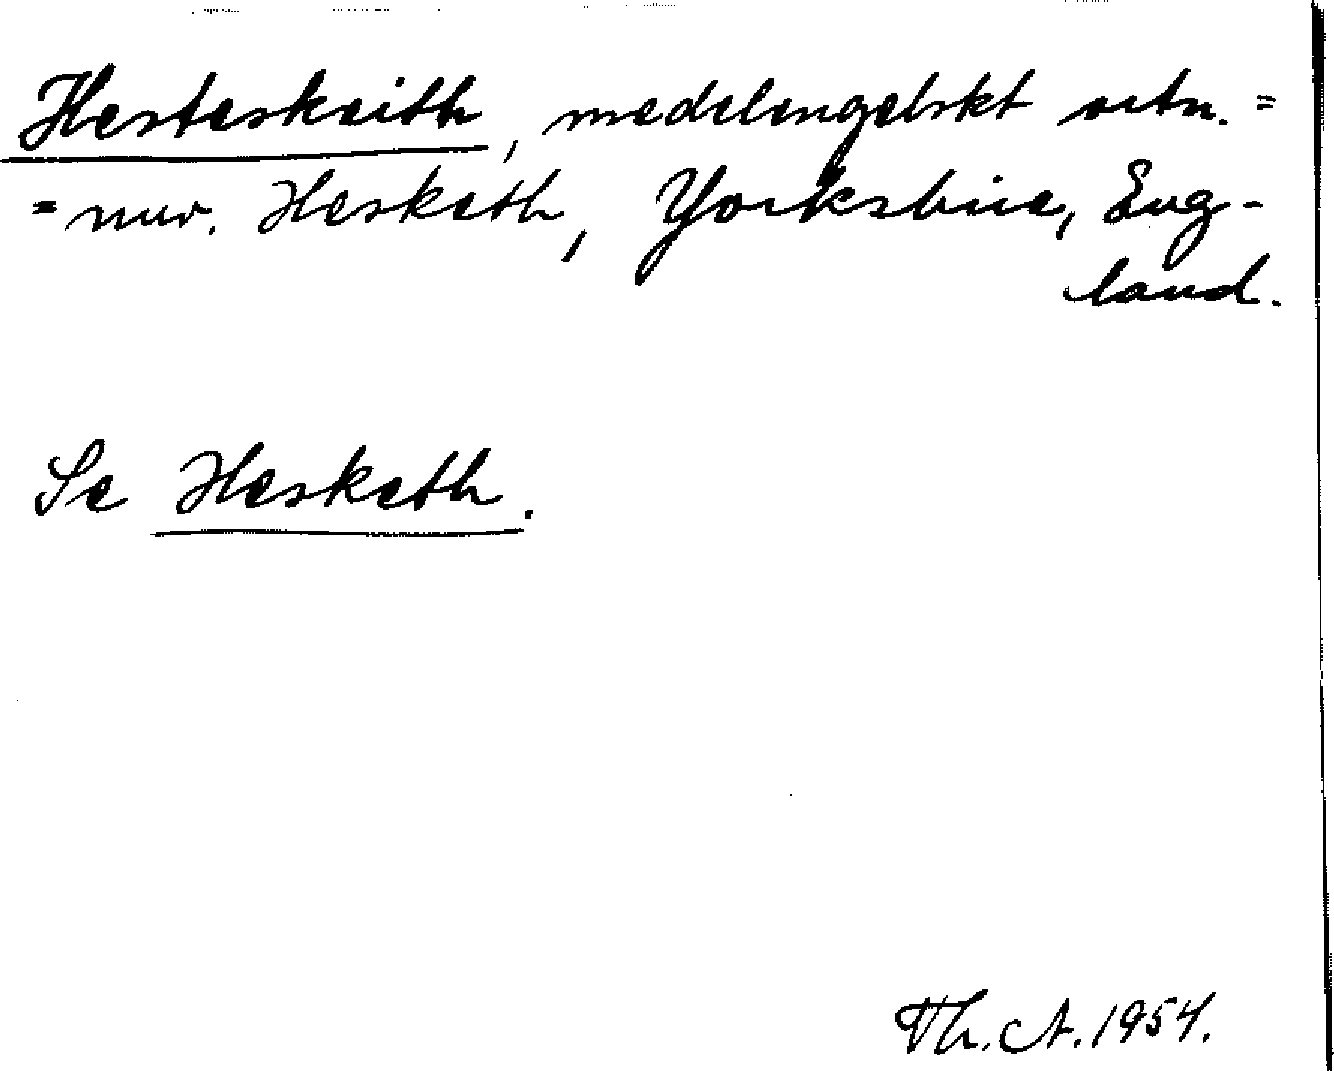 Hesteskeith, medelengelskt ortn. =
= nuv. Hesketh, Yorkshire, Eng-
land.
Se Hesketh.
Th. A. 1954.